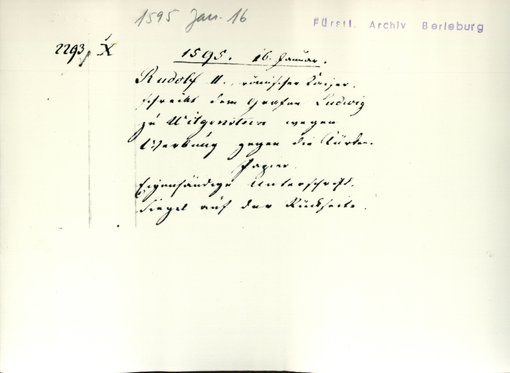 1595 Jan. 16
Fürstl. Archiv Berleburg
2293, X
1595. 16. Januar.
Rudolf II. römischer Kaiser.
schreibt dem Grafen Ludwig
zu Witgenstein wegen
Werbung gegen die Türken.
Papier.
Eigenhändige Unterschrift.
Siegel auf der Rückseite.